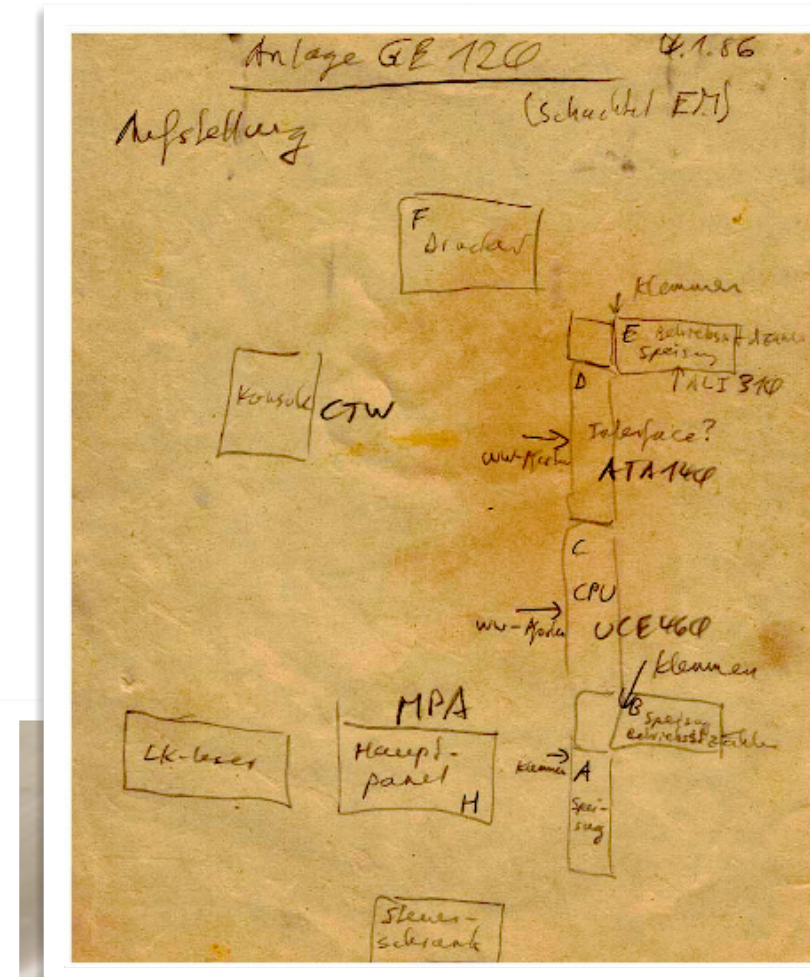 Anlage GE 120
4.1.86
(Schachtel EM)
Aufstellung
F
Drucker
Klemmen
E Betriebsstdzähler
Speisung
ALI 310
D
Konsole CTW
Interface?
ATA 140
C
CPU
UCE 460
Klemmen
MPA
B Speisung
Betriebsstzähler
LK-leser
Haupt-
panel
H
Klemmen
A
Spei-
sung
Steuer-
schrank